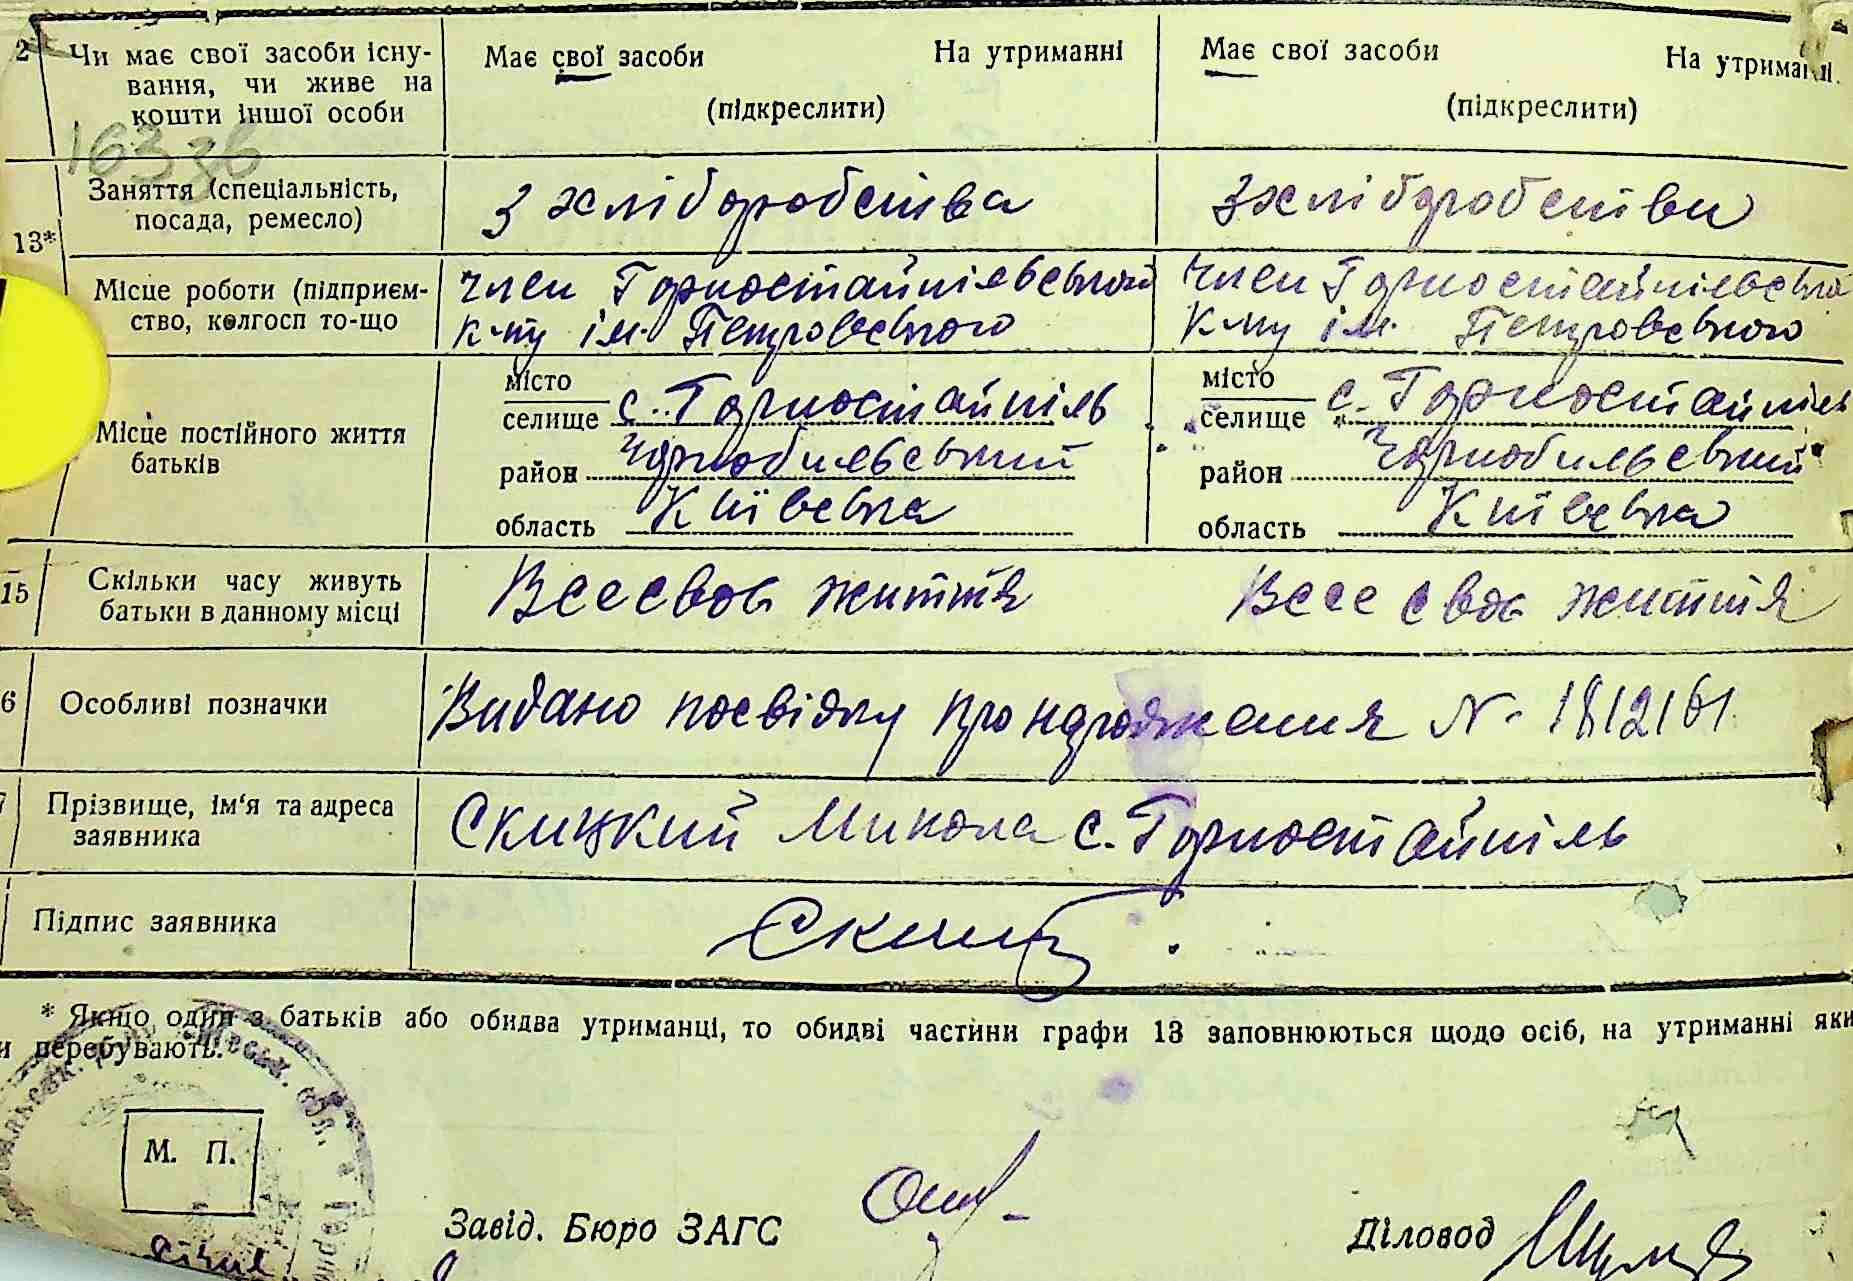 2 Чи має свої засоби існу-
вання, чи живе на
кошти іншої особи
Має свої засоби На утриманні
(підкреслити)
Має свої засоби На утриманні
(підкреслити)
16336
13*
Заняття (спеціальність,
посада, ремесло)
З хліборобства
З хліборобства
Місце роботи (підприєм-
ство, колгосп то-що
член Горностайпільського
к-пу ім. Петровського
член Горностайпільсько
К-пу ім. Петровського
Місце постійного життя
батьків
місто
селище с. Горностайпіль
район Чорнобильський
область Київська
місто
селище с. Горностайпіль
район Чорнобильський
область Київська
15 Скільки часу живуть
батьки в данному місці
Все своє життя
Все своє життя
6 Особливі позначки
Видано посвідку про народження № 1812161
7 Прізвище, ім'я та адреса
заявника
Скицкий Микола с. Горностайпіль
Підпис заявника
* Якщо один з батьків або обидва утриманці, то обидві частини графи 13 заповнюються щодо осіб, на утриманні яки
и перебувають.
М. П.
Завід. Бюро ЗАГС
Діловод